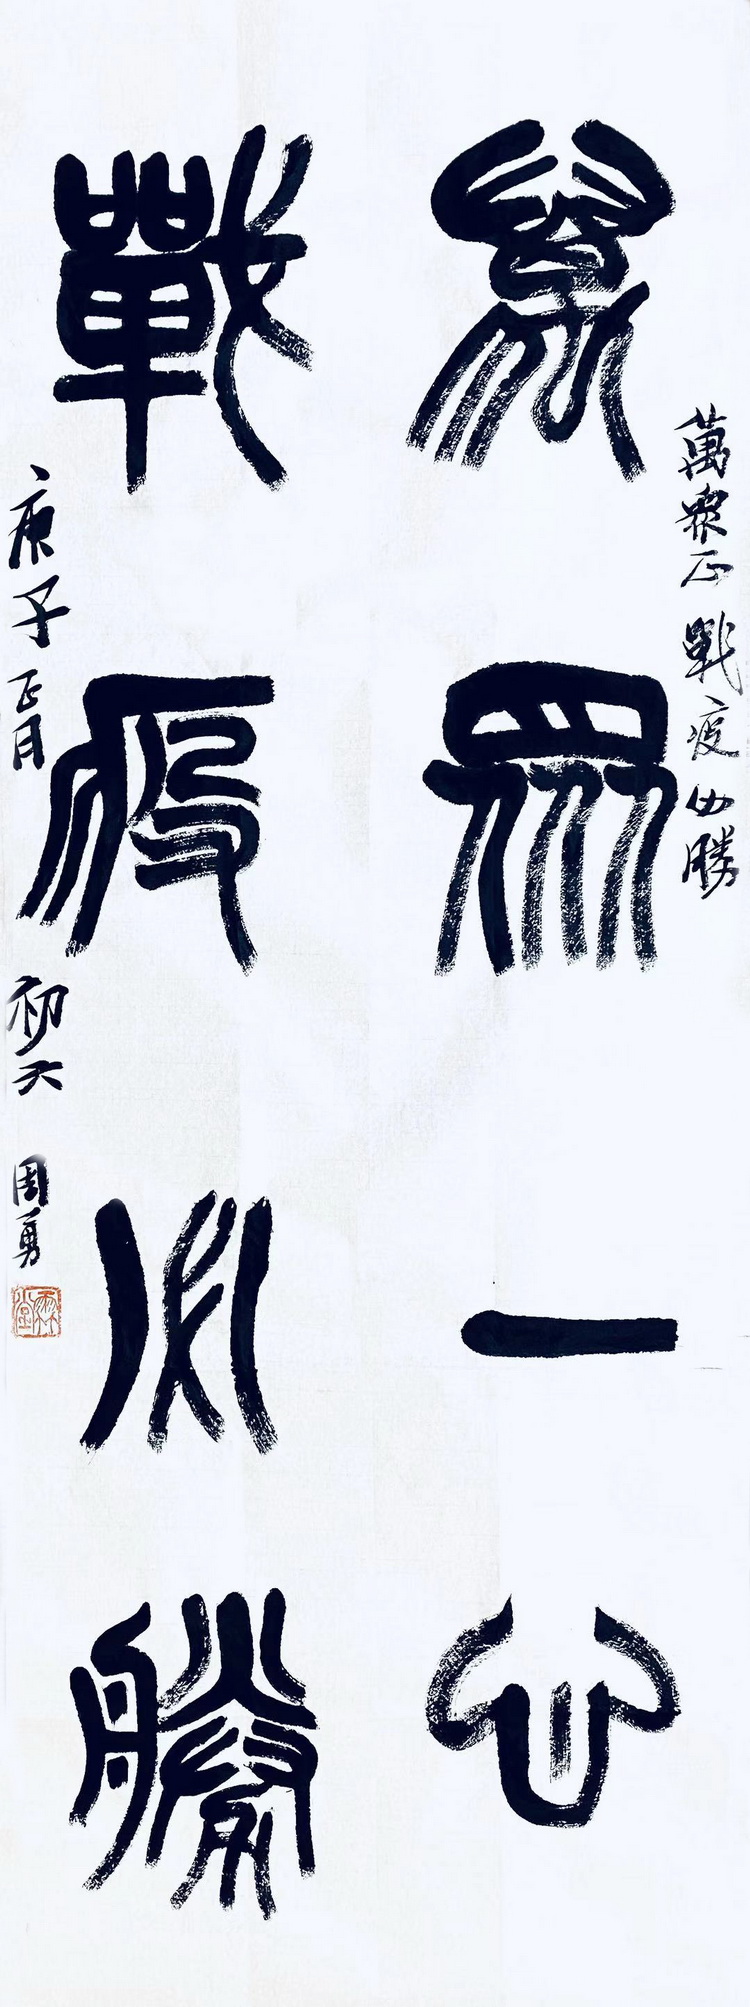 萬眾一心 戰疫必勝
萬眾一心
戰疫必勝
庚子正月初六 周勇